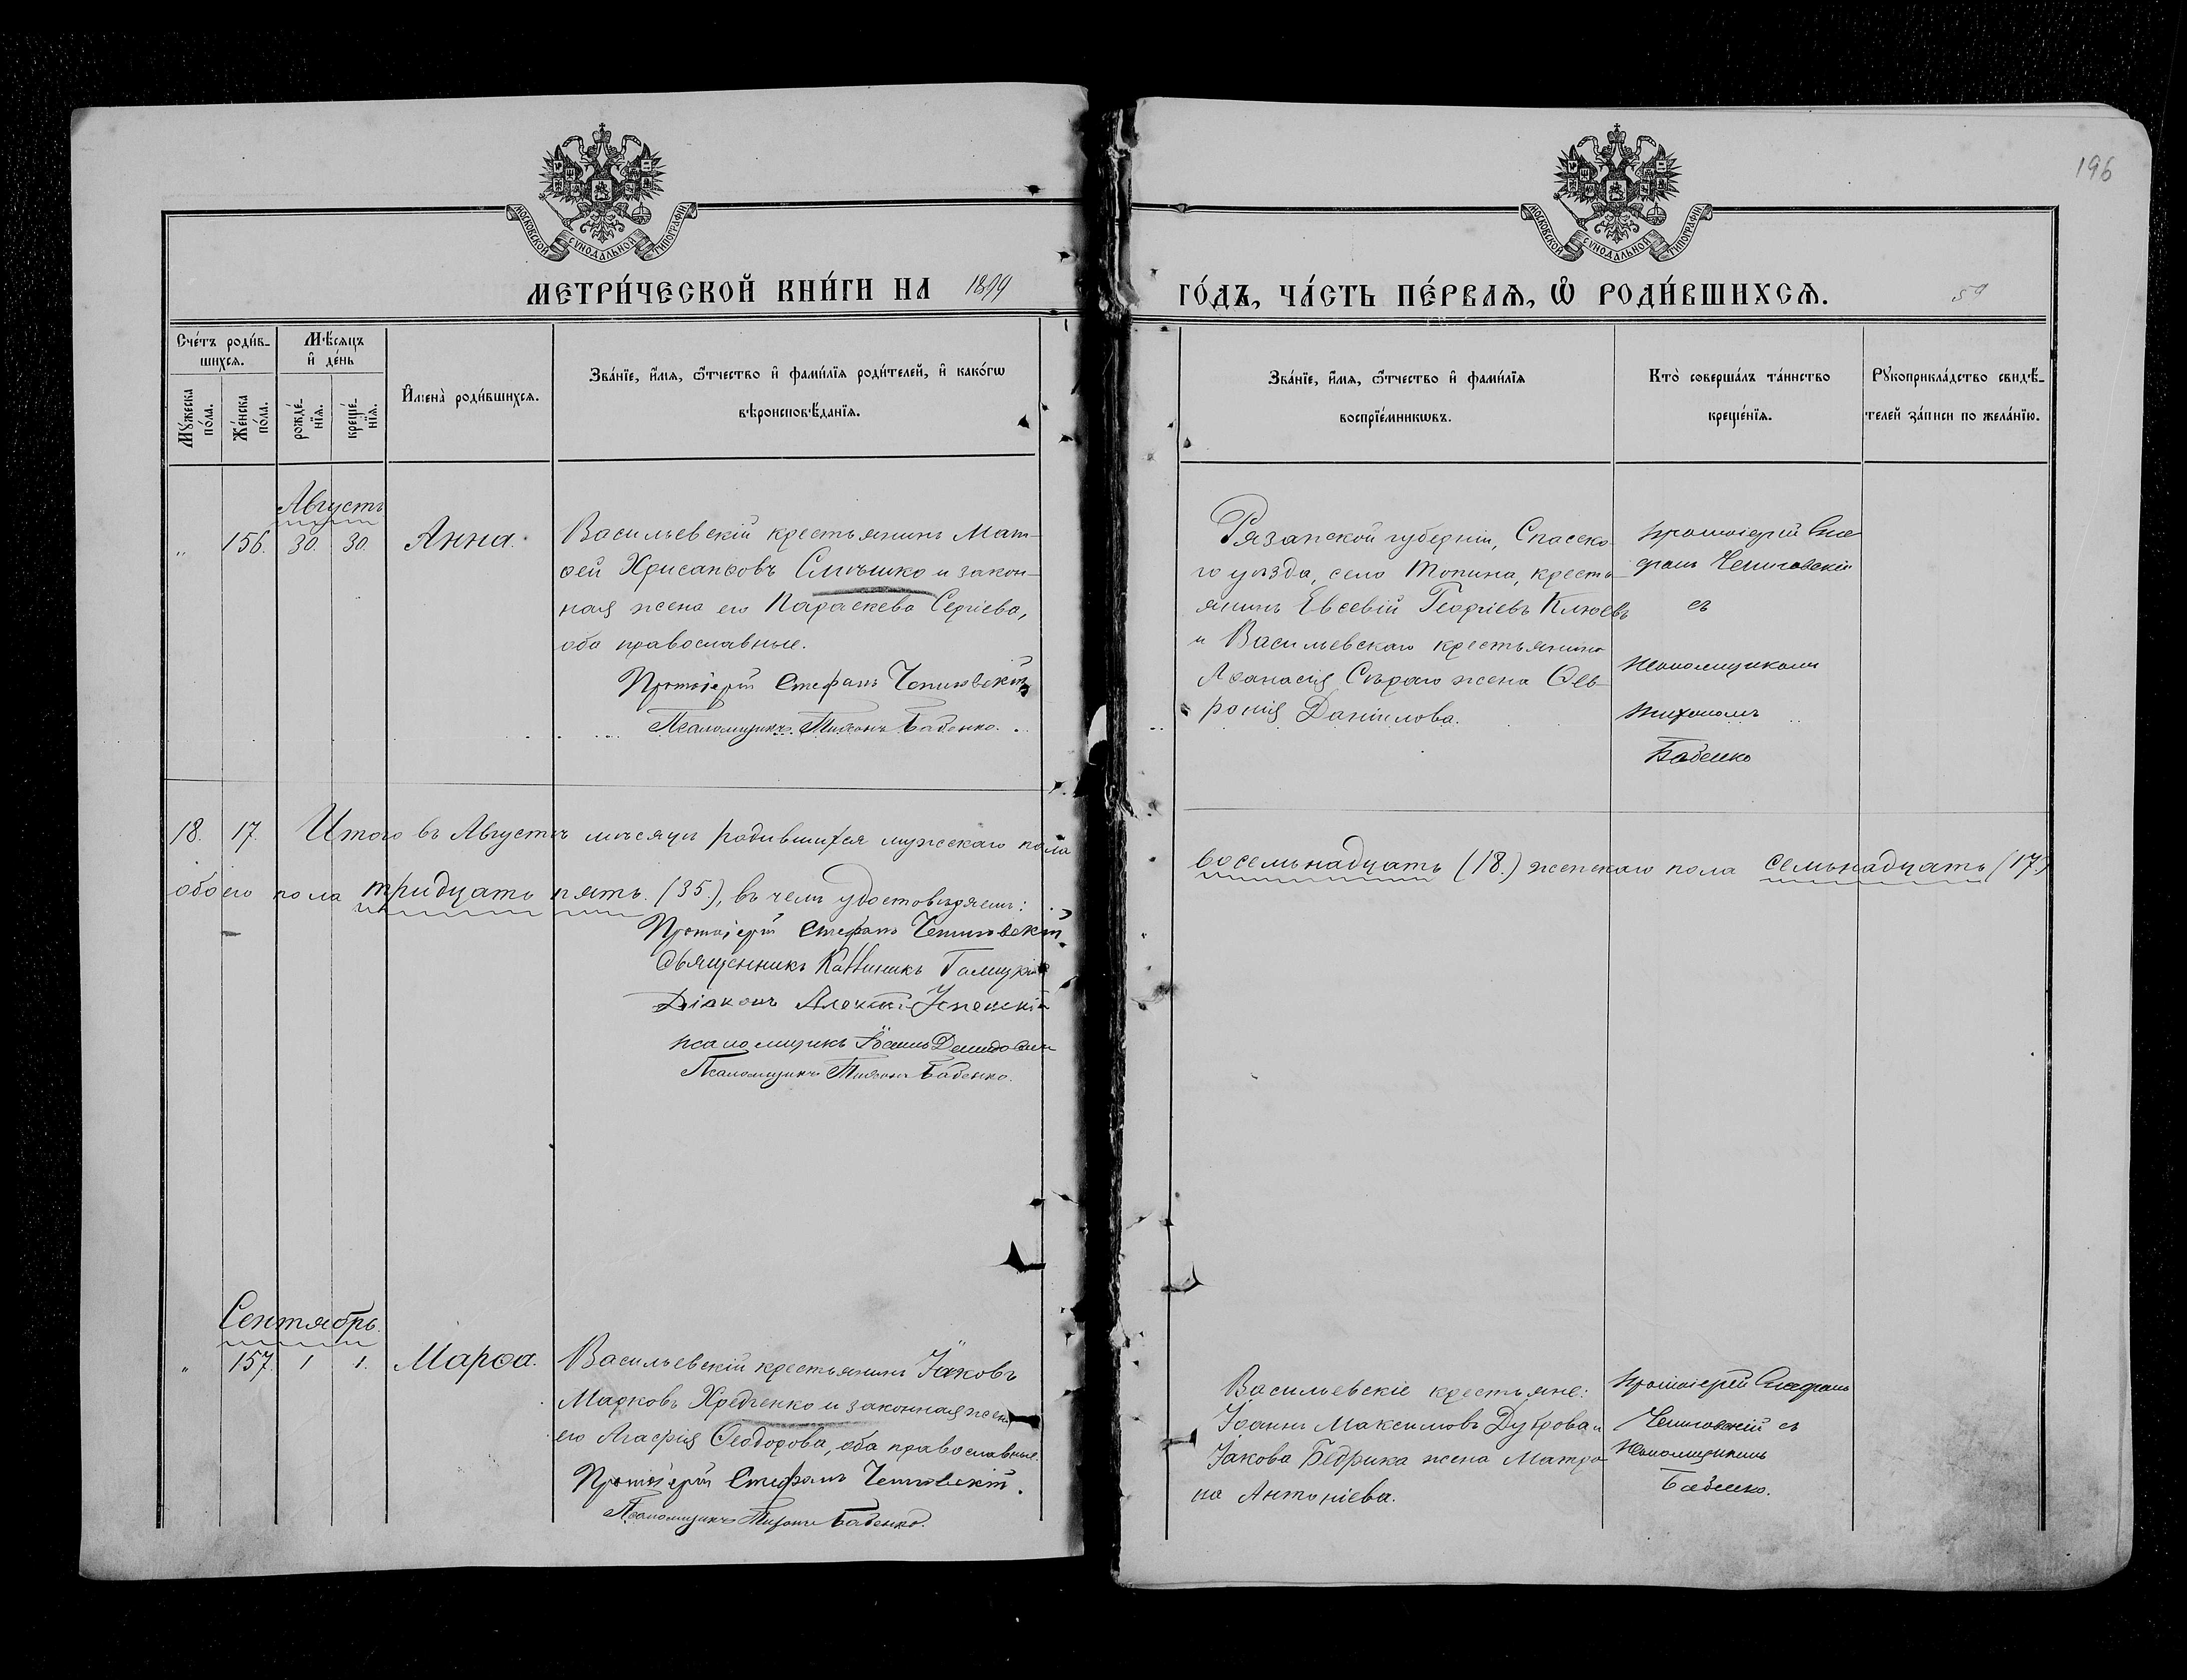 196
МОСКОВСКОЙ СѴНОДАЛЬНОЙ ТИПОГРАФІИ
МОСКОВСКОЙ СѴНОДАЛЬНОЙ ТИПОГРАФІИ
МЕТРИ́ЧЕСКОЙ КНИ́ГИ НА 1899
ГО́ДЪ, ЧА́СТЬ ПЕ́РВАѦ, Ѡ РОДИ́ВШИХСѦ.
59
Сче́тъ роди́в-
шихсѧ.
Мѣ́сѧцъ
и҆ де́нь
Мꙋ́жеска
по́ла.
Же́нска
по́ла.
рожде́-
нїѧ.
креще́-
нїѧ.
И҆мена̀ роди́вшихсѧ.
Зва́нїе, и҆́мѧ, ѻ҆́тчество и҆ фами́лїѧ роди́телей, и҆ како́гѡ
вѣроисповѣ́данїѧ.
Зва́нїе, и҆́мѧ, ѻ҆́тчество и҆ фами́лїѧ
воспрїе́мникѡвъ.
Кто̀ соверша́лъ та́инство
креще́нїѧ.
Рꙋкоприкла́дство свидѣ́-
телей за́писи по жела́нїю.
Августъ
" 156. 30. 30. Анна.
Васильевскій крестьянинъ Мат-
ѳей Хрисанѳовъ Смѣшко и закон-
ная жена его Параскева Сергіева,
оба православные.
Протоіерей Стефанъ
Псаломщикъ Тихонъ Бабенко.
Рязанской губерніи, Спасско-
го уѣзда, села Топина, кресть-
янинъ Евсевій Георгіевъ Клюевъ
и Васильевскаго крестьянина
Аѳанасія Сѣраго жена Ѳев-
ронія Даніилова.
Протоіерей Сте-
фанъ
съ
Псаломщикомъ
Тихономъ
Бабенко
18. 17. Итого въ Августѣ мѣсяцѣ родившихся мужскаго пола
восемьнадцать (18.) женскаго пола семьнадцать (17.)
обоего пола тридцать пять. (35.), въ чемъ удостовѣряемъ:
Протоіерей Стефанъ
Священникъ Каллиникъ
Діаконъ Алексій Успенскій
Псаломщикъ Іоаннъ
Псаломщикъ Тихонъ Бабенко.
Сентябрь.
" 157. 1 1. Марѳа.
Васильевскій крестьянинъ Іаковъ
Марковъ Хредченко и законная жена
его Агафія Ѳеодорова, оба православные.
Протоіерей Стефанъ
Псаломщикъ Тихонъ Бабенко.
Васильевскіе крестьяне:
Іоаннъ Максимовъ Дуброва и
Іакова Бедрика жена Матро-
на Антоніева.
Протоіерей Стефанъ
съ
Псаломщикомъ
Бабенко.